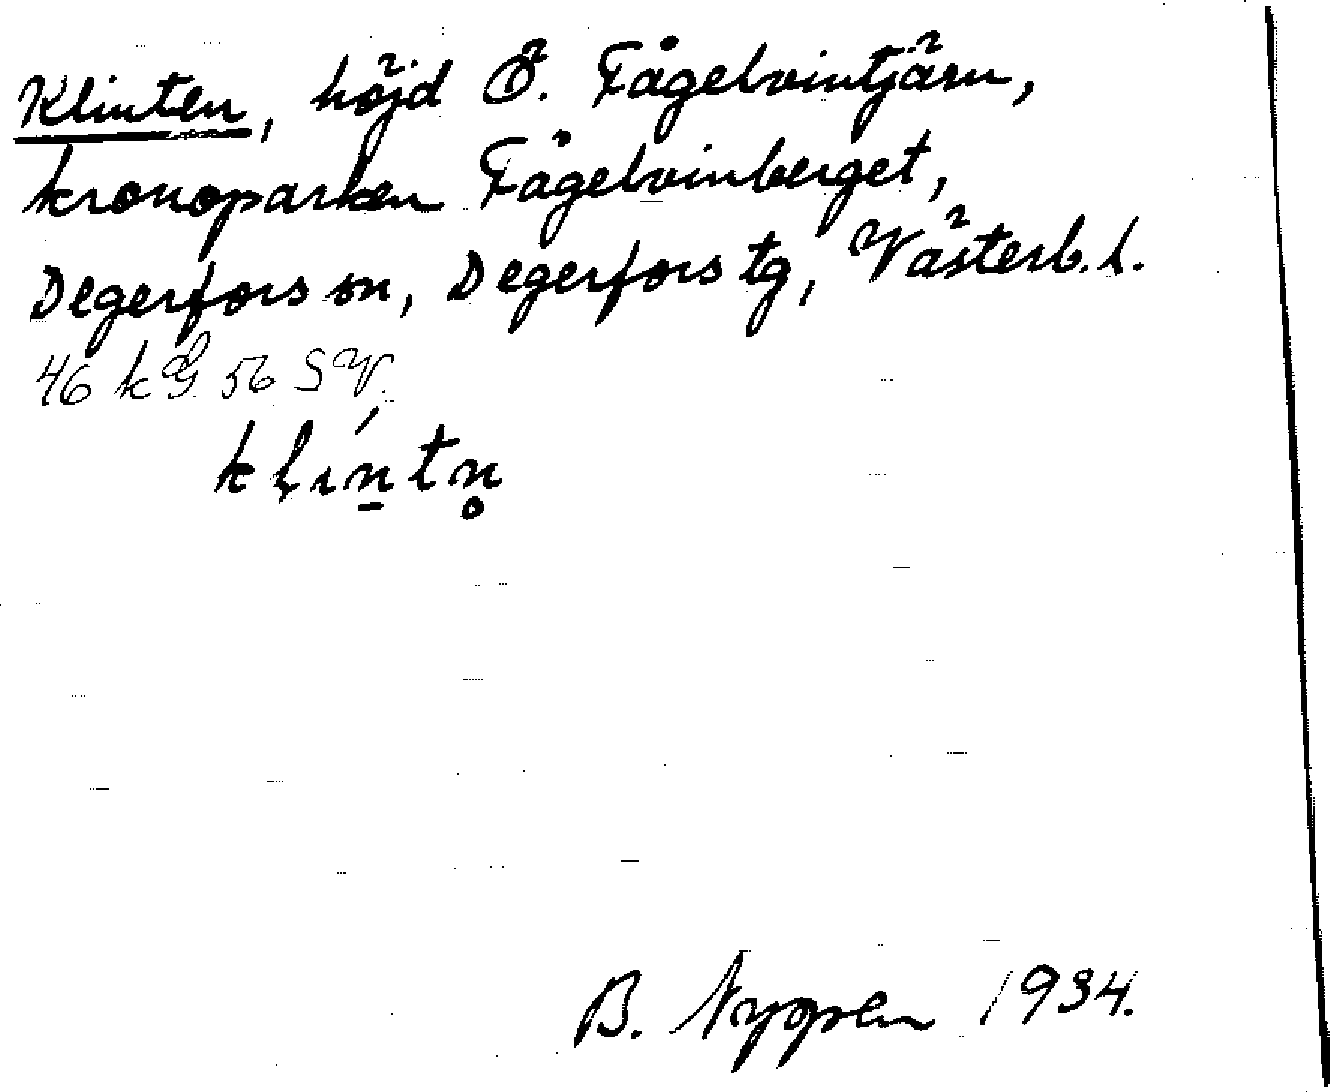 Klinten, höjd Ö. Fågelvintjärn,
kronoparken Fågelvinberget,
Degerfors sn, Degerfors tg, Västerb. l.
46 kg 56 SV.
kḷíṉtn̥
B. Nyppen 1934.